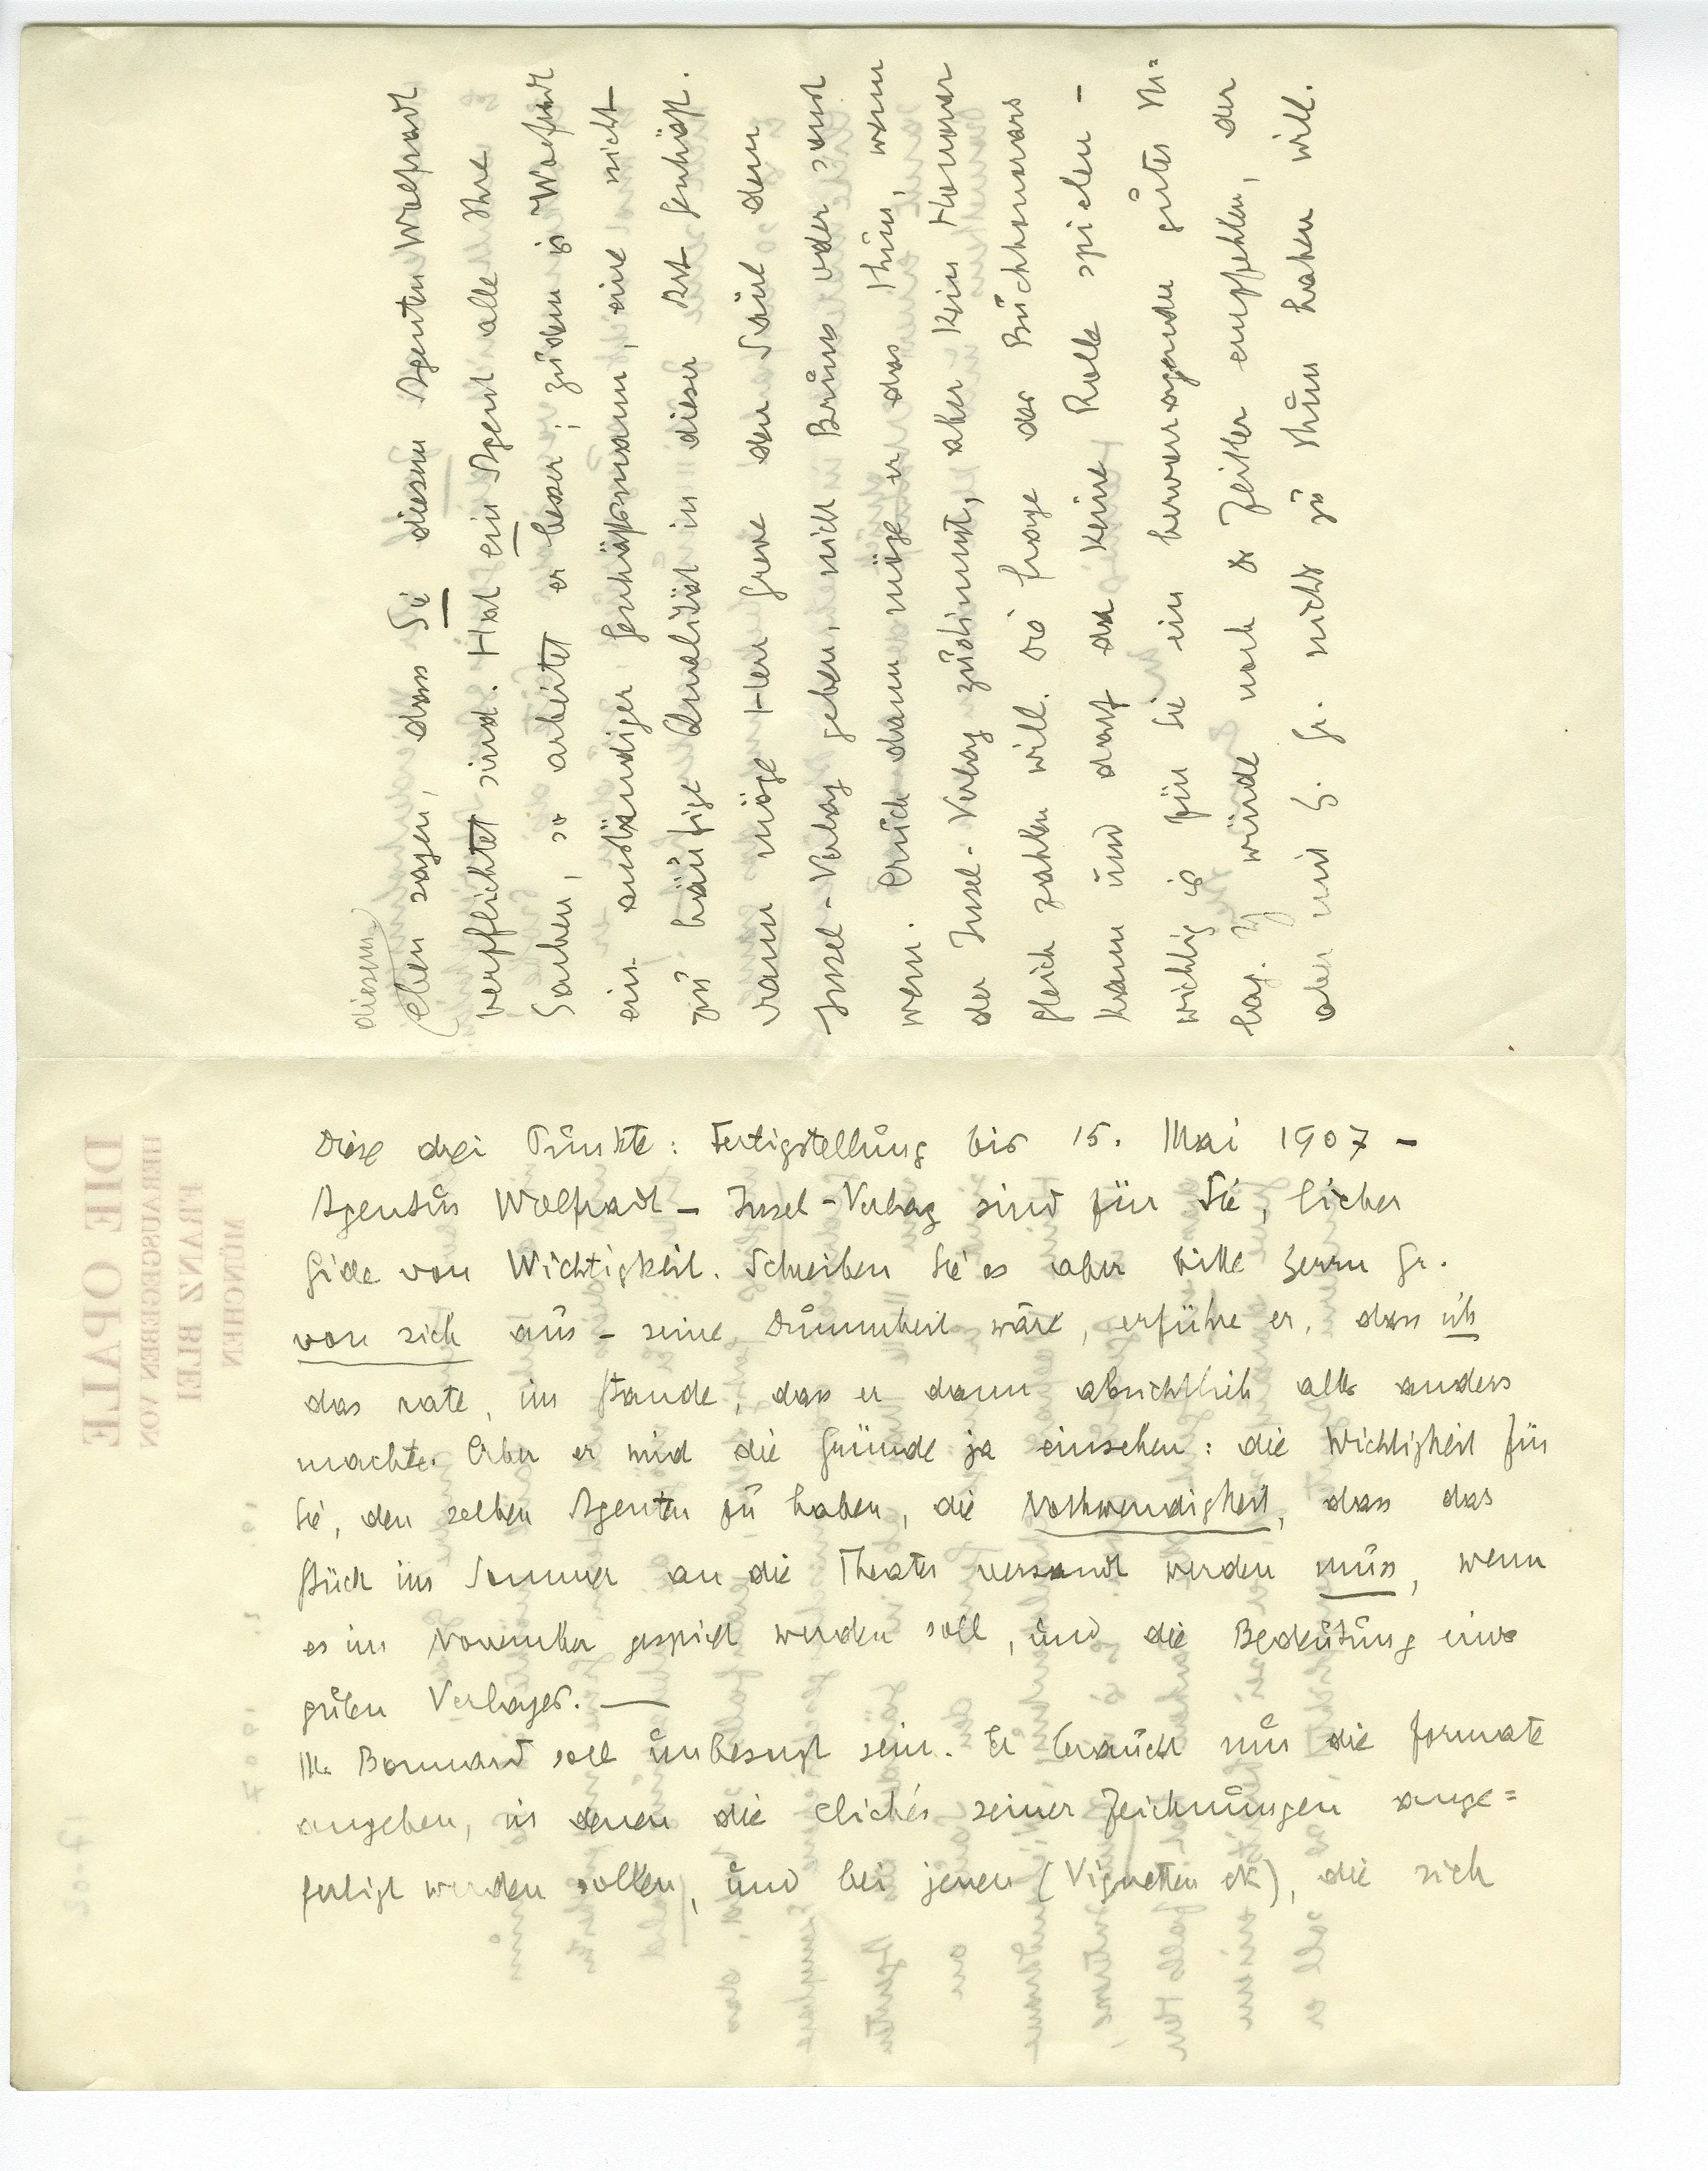 diesem
eben sagen, dass Sie diesem Agenten Wolfradt
verpflichtet sind. Hat ein Agent alle Ihre
Sachen, so arbeitet er besser; zudem is Wolfradt
ein anständiger Geschäftsmann, eine nicht
zu häufige Qualität in dieser Art Geschäft.
Dann möge Herr Greve der Säul dem
Insel-Verlag geben, nicht Bruns oder sonst
wem. Auch dann möge er das thun, wenn
der Insel-Verlag zustimmt, aber kein Honorar
gleich zahlen will. Die Frage des Buchhonorars
kann und darf da keine Rolle spielen –
wichtig is für Sie ein hervorragender guter Ver=
lag. Ich würde noch Zeitler empfehlen, der
aber mit H. Gr. nichts zu thun haben will.
Diese drei Punkte: Fertigstellung bis 15. Mai 1907 –
Agentur Wolfradt – Insel-Verlag sind für Sie, lieber
Gide von Wichtigkeit. Schreiben Sie es aber bitte Herrn Gr.
von sich aus – seine Dummheit wäre, erführe er, dass ich
das rate, im Stande, dass er dann absichtlich alles anders
machte. Aber er wird die Gründe ja einsehen: die Wichtigkeit für
Sie, den selben Agenten zu haben, die Nothwendigkeit, dass das
Stück im Sommer an die Theater versandt werden muss, wenn
es im November gespielt werden soll, und die Bedeutung eines
guten Verlages. —
Mr Bonnard soll unbesorgt sein. Er braucht nur die Formate
angeben, in denen die clichés seiner Zeichnungen ange=
fertigt werden sollen, und bei jenen (Vignetten etc), die sich
DIE OPALE
HERAUSGEGEBEN VON
FRANZ BLEI
MÜNCHEN